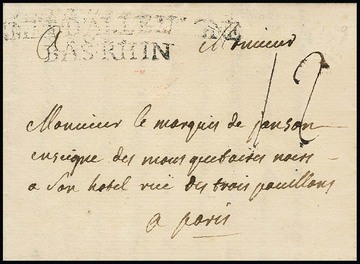 BAS RHIN
Monsieur
12
Monsieur le marquis de janson
enseigne des mousquetaires noirs
a son hotel rue des trois pavillons
a paris